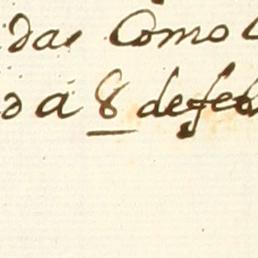 das Como
o á 8 de feb